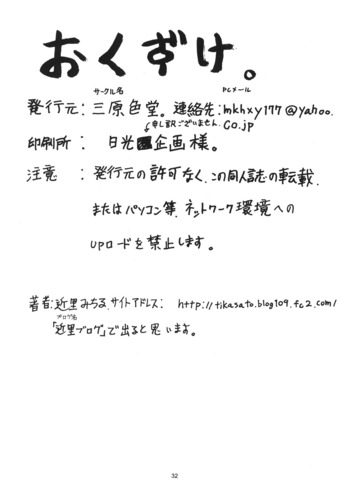 おくずけ。
サークル名 PCメール
発行元:三原色堂。連絡先:mkhxy177@yahoo.
申し訳ございません。 co.jp
印刷所: 日光企画様。
注意 : 発行元の許可なく、この同人誌の転載、
またはパソコン等、ネットワーク環境への
UPロードを禁止します。
著者:近里みちる、サイトアドレス: http://tikasato.blog109.fc2.com/
ブログ名
「近里ブログ」で出ると思います。
32